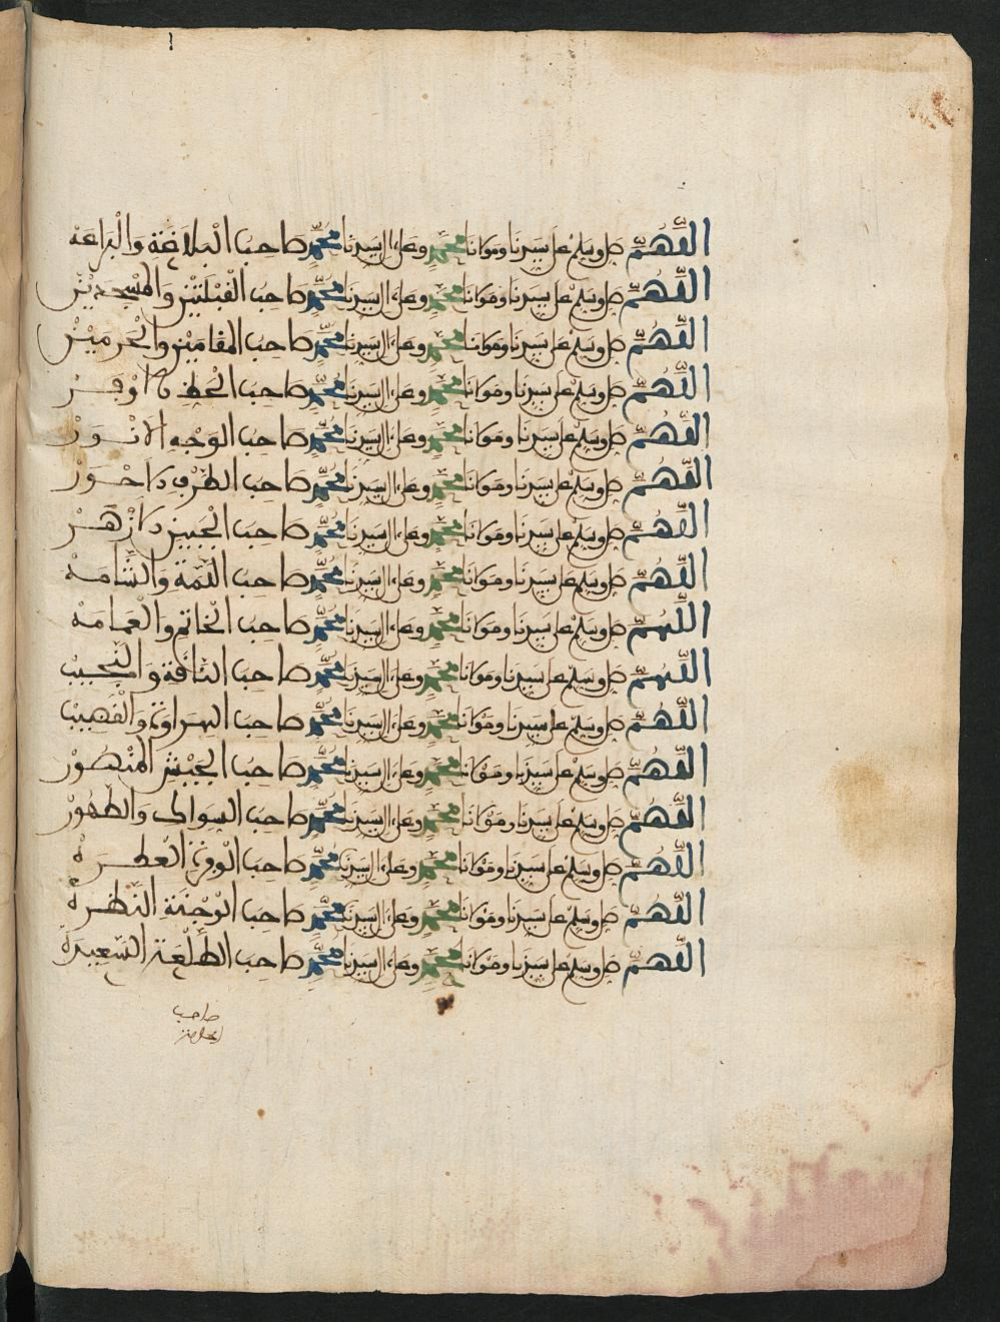 اللَّهُمَّ صل وسلم على سيدنا ومولانا محمد وعلى ءال سيدنا محمد صاحب البلاغة والبراعة
اللَّهُمَّ صل وسلم على سيدنا ومولانا محمد وعلى ءال سيدنا محمد صاحب القبلتين والمسجدين
اللَّهُمَّ صل وسلم على سيدنا ومولانا محمد وعلى ءال سيدنا محمد صاحب المقامين والحرمين
اللَّهُمَّ صل وسلم على سيدنا ومولانا محمد وعلى ءال سيدنا محمد صاحب الحظ الاوفر
اللَّهُمَّ صل وسلم على سيدنا ومولانا محمد وعلى ءال سيدنا محمد صاحب الوجه الانور
اللَّهُمَّ صل وسلم على سيدنا ومولانا محمد وعلى ءال سيدنا محمد صاحب الطرف الاحور
اللَّهُمَّ صل وسلم على سيدنا ومولانا محمد وعلى ءال سيدنا محمد صاحب الجبين الازهر
اللَّهُمَّ صل وسلم على سيدنا ومولانا محمد وعلى ءال سيدنا محمد صاحب اللمة والشامة
اللَّهُمَّ صل وسلم على سيدنا ومولانا محمد وعلى ءال سيدنا محمد صاحب الخاتم والعمامة
اللَّهُمَّ صل وسلم على سيدنا ومولانا محمد وعلى ءال سيدنا محمد صاحب الناقة والنجيب
اللَّهُمَّ صل وسلم على سيدنا ومولانا محمد وعلى ءال سيدنا محمد صاحب الهراوة والقضيب
اللَّهُمَّ صل وسلم على سيدنا ومولانا محمد وعلى ءال سيدنا محمد صاحب الجيش المنصور
اللَّهُمَّ صل وسلم على سيدنا ومولانا محمد وعلى ءال سيدنا محمد صاحب السواك والطهور
اللَّهُمَّ صل وسلم على سيدنا ومولانا محمد وعلى ءال سيدنا محمد صاحب الوفرة العطرة
اللَّهُمَّ صل وسلم على سيدنا ومولانا محمد وعلى ءال سيدنا محمد صاحب الوجنة النظرة
اللَّهُمَّ صل وسلم على سيدنا ومولانا محمد وعلى ءال سيدنا محمد صاحب الطلعة السعيدة
صاحب